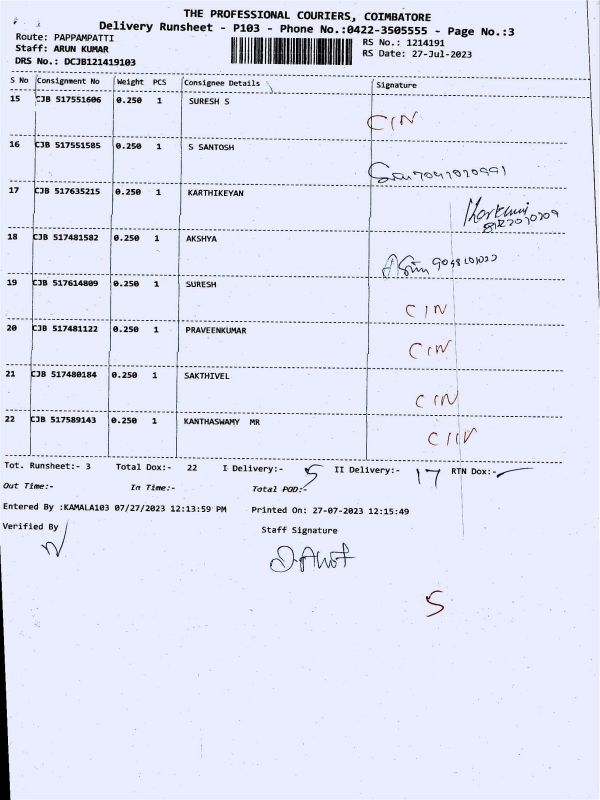 THE PROFESSIONAL COURIERS, COIMBATORE
Delivery Runsheet - P103 - Phone No.:0422-3505555 - Page No.:3
Route: PAPPAMPATTI
RS No.: 1214191
Staff: ARUN KUMAR
RS Date: 27-Jul-2023
DRS No.: DCJB121419103
S No Consignment No Weight PCS Consignee Details Signature
15 CJB 517551606 0.250 1 SURESH S
CIN
16 CJB 517551585 0.250 1 S SANTOSH
17 CJB 517635215 0.250 1 KARTHIKEYAN
18 CJB 517481582 0.250 1 AKSHYA
19 CJB 517614809 0.250 1 SURESH
CIN
20 CJB 517481122 0.250 1 PRAVEENKUMAR
CIN
21 CJB 517480184 0.250 1 SAKTHIVEL
CIN
22 CJB 517589143 0.250 1 KANTHASWAMY MR
CIN
Tot. Runsheet:- 3 Total Dox:- 22 I Delivery:- 5 II Delivery:- 17 RTN Dox:-
Out Time:- In Time:- Total POD:-
Entered By :KAMALA103 07/27/2023 12:13:59 PM Printed On: 27-07-2023 12:15:49
Verified By Staff Signature
5